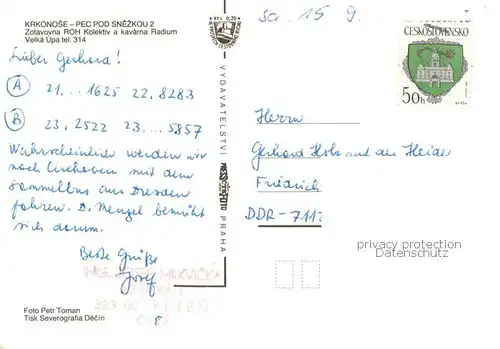 KRKONOŠE – PEC POD SNĚŽKOU 2
Zotavovna ROH Kolektiv a kavárna Radium
Velká Úpa tel. 314
Lieber Gerhard!
Ⓐ 21...1625 22.8283
Ⓑ 23.2522 23...5857
Wahrscheinlich werden wir
nach mit dem
Sammelbus aus Dresden
fahren. D. Menzel bemüht
sich darum.
Beste Grüße
Josef
MRKVIČKA
323 00 PLZEŇ
Foto Petr Toman
Tisk Severografia Děčín
Kčs 0,20
VYDAVATELSTVÍ PRAHA
15 9.
ČESKOSLOVENSKO
50h
Herrn
Gerhard Holz auf der Heider
Friedrich
DDR-711
privacy protection
Datenschutz